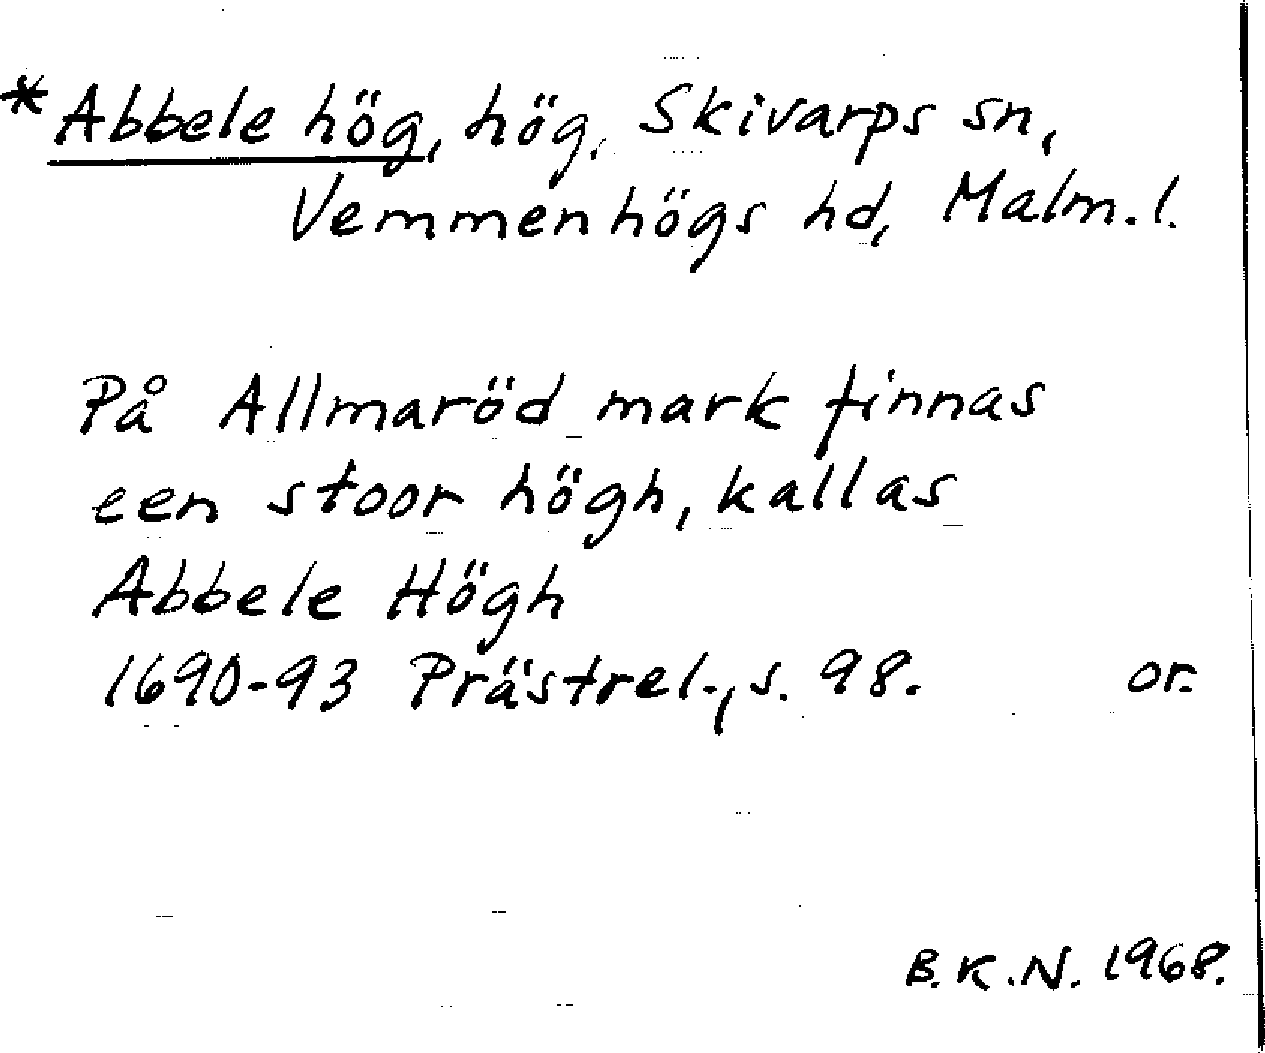 *Abbele hög, hög, Skivarps sn,
Vemmenhögs hd, Malm. l.
På Allmaröd mark finnas
een stoor högh, kallas
Abbele Högh
1690-93 Prästrel., s. 98. or.
B.K.N. 1968.